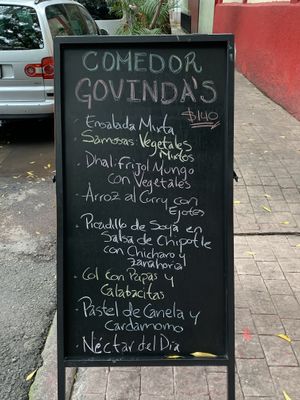 COMEDOR
GOVINDA'S
$140
· Ensalada Mixta
Samosas: Vegetales
Mixtos
· Dhal: Frijol Mungo
con Vegetales
· Arroz al Curry con
Ejotes
· Picadillo de Soya en
Salsa de Chipotle
con Chicharo y
Zanahoria
· Col con Papas y
Calabacitas
· Pastel de Canela y
Cardamomo
· Néctar del Día